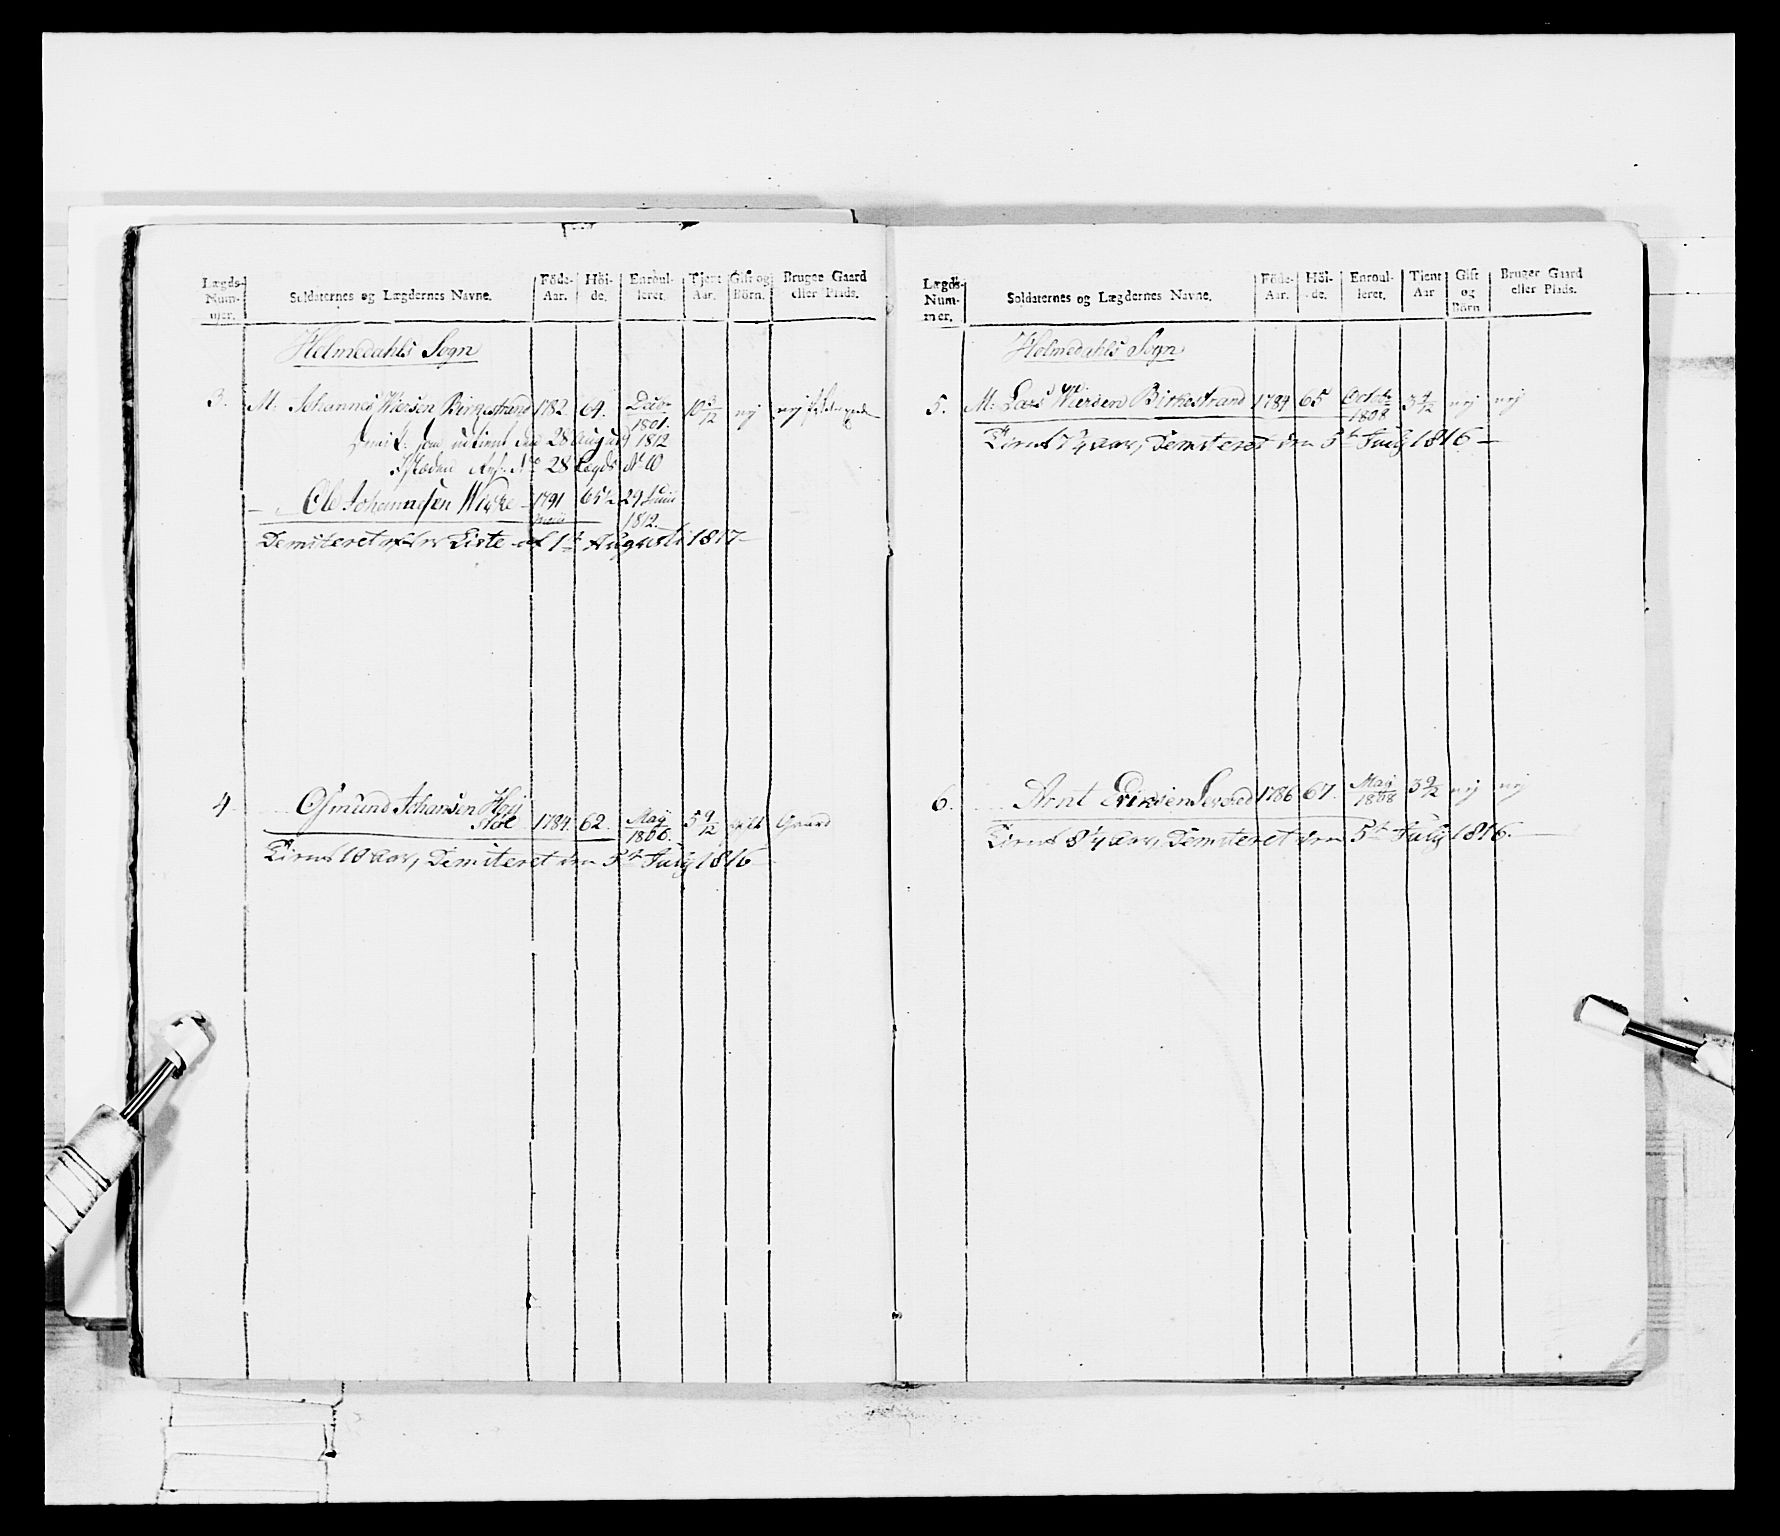 Lægds-Num-mer. Soldaternes og Lægdernes Navne. Föde-Aar. Höi-de. Enroul-leret. Tjent Aar. Gift og Börn. Bruger Gaard eller Plads.
Holmedahls Sogn
3. M. Johannes Wiersen Birkestrand 1782. 64. Decbr 1801. 10 3/12 nej nej
som udtient den 28 August 1812
Istæden No 28 Lægds No 10
Ole Johannesen Wirke 1791 65½ 29 Junii 1812.
Demiteret efter Liste af 1te Augusti 1817
4. Osmund Johansen Høy 1784. 62. May 1806. 5 9/12 gift Gaard
Tient 10 Aar, Demiteret den 5te July 1816
Lægds-Num-mer. Soldaternes og Lægdernes Navne. Föde-Aar. Höi-de. Enroul-leret. Tjent Aar Gift og Börn Bruger Gaard eller Plads.
Holmedahls Sogn
5. M. Lars Wiersen Birkestrand 1784 65 Octobr 1808 3 4/12 nej nej
Tient 7¾ Aar, Demiteret den 5te July 1816
6. Arnt Eriksen 1786 67. May 1808 3 9/12 nej nej
Tient 8¼ Aar, Demiteret den 5te July 1816.